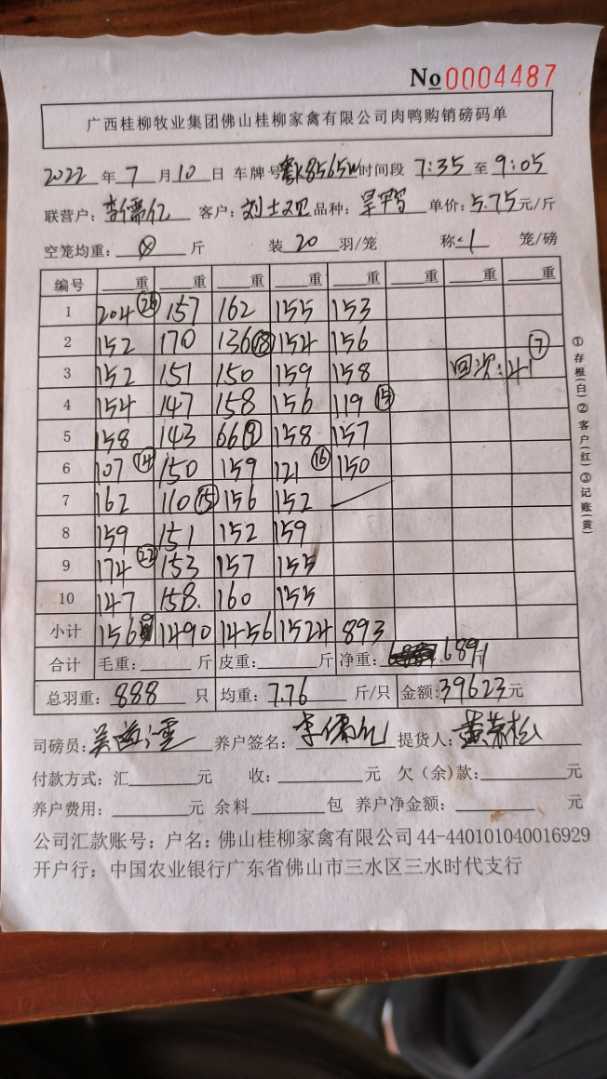 No 0004487
广西桂柳牧业集团佛山桂柳家禽有限公司肉鸭购销磅码单
2022 年 7 月 10 日 车牌号 8565 时间段 7:35 至 9:05
联营户: 李儒亿 客户: 刘士 品种: 单价: 5.75 元/斤
空笼均重: 斤 装 20 羽/笼 称 1 笼/磅
编号 重 重 重 重 重 重 重 重
1 204 157 162 155 153
2 152 170 136 ⑱ 154 156 ⑦
3 152 151 150 159 158 回次: 41
4 154 147 158 156 119 ⑮
5 158 143 66 ⑨ 158 157
6 107 ⑭ 150 159 121 ⑯ 150
7 162 110 ⑮ 156 152
8 159 151 152 159
9 174 ㉒ 153 157 155
10 147 158. 160 155
小计 1569 1490 1456 1524 893
合计 毛重: 斤 皮重: 斤 净重: 6891
总羽重: 888 只 均重: 7.76 斤/只 金额: 39623 元
司磅员: 养户签名: 李儒亿 提货人: 黄荣松
付款方式: 汇 元 收: 元 欠(余)款: 元
养户费用: 元 余料 包 养户净金额: 元
公司汇款账号: 户名: 佛山桂柳家禽有限公司 44-440101040016929
开户行: 中国农业银行广东省佛山市三水区三水时代支行
①存根(白)②客户(红)③记账(黄)